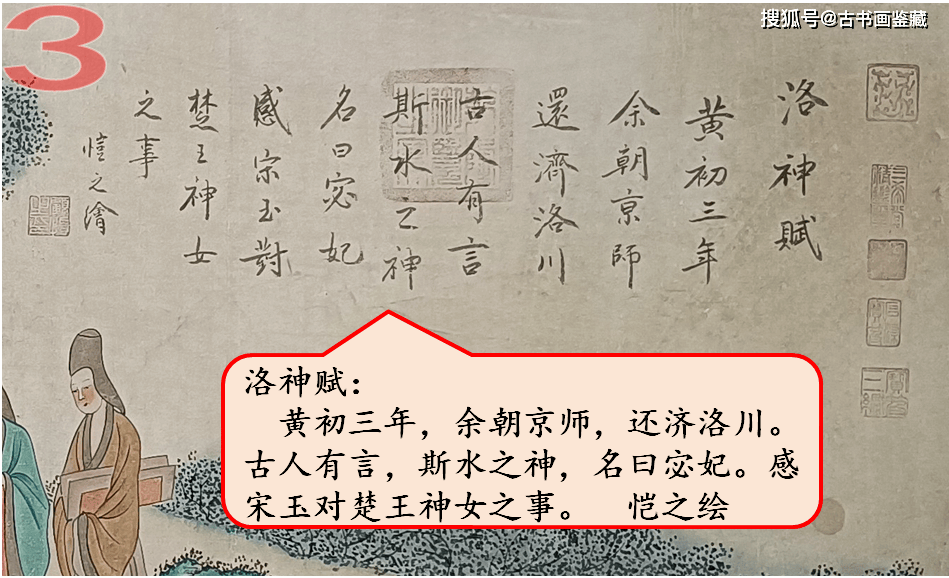 3
搜狐号@古书画鉴藏
洛神賦
黄初三年
余朝京師
還濟洛川
古人有言
斯水之神
名曰宓妃
感宋玉對
楚王神女
之事
愷之繪
洛神赋：
黄初三年，余朝京师，还济洛川。
古人有言，斯水之神，名曰宓妃。感
宋玉对楚王神女之事。 恺之绘